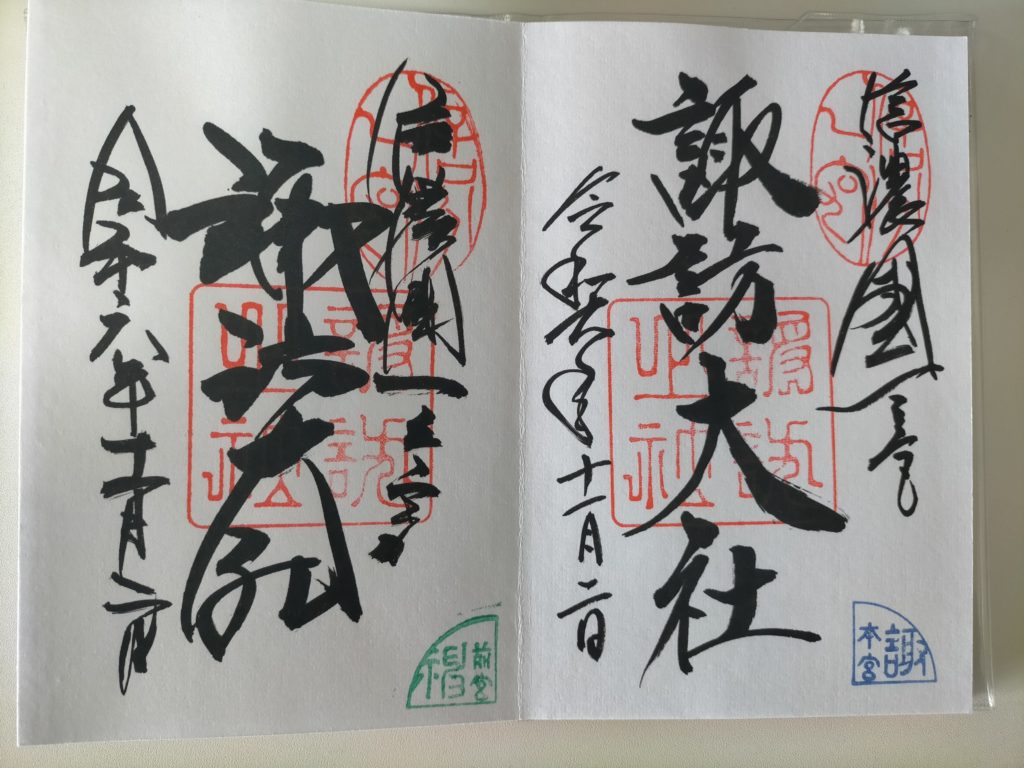 信濃國一之宮
諏訪大社
令和六年十一月二日
諏訪之社
本宮
諏
信濃國一之宮
諏訪大社
令和六年十一月二日
諏訪之社
前宮